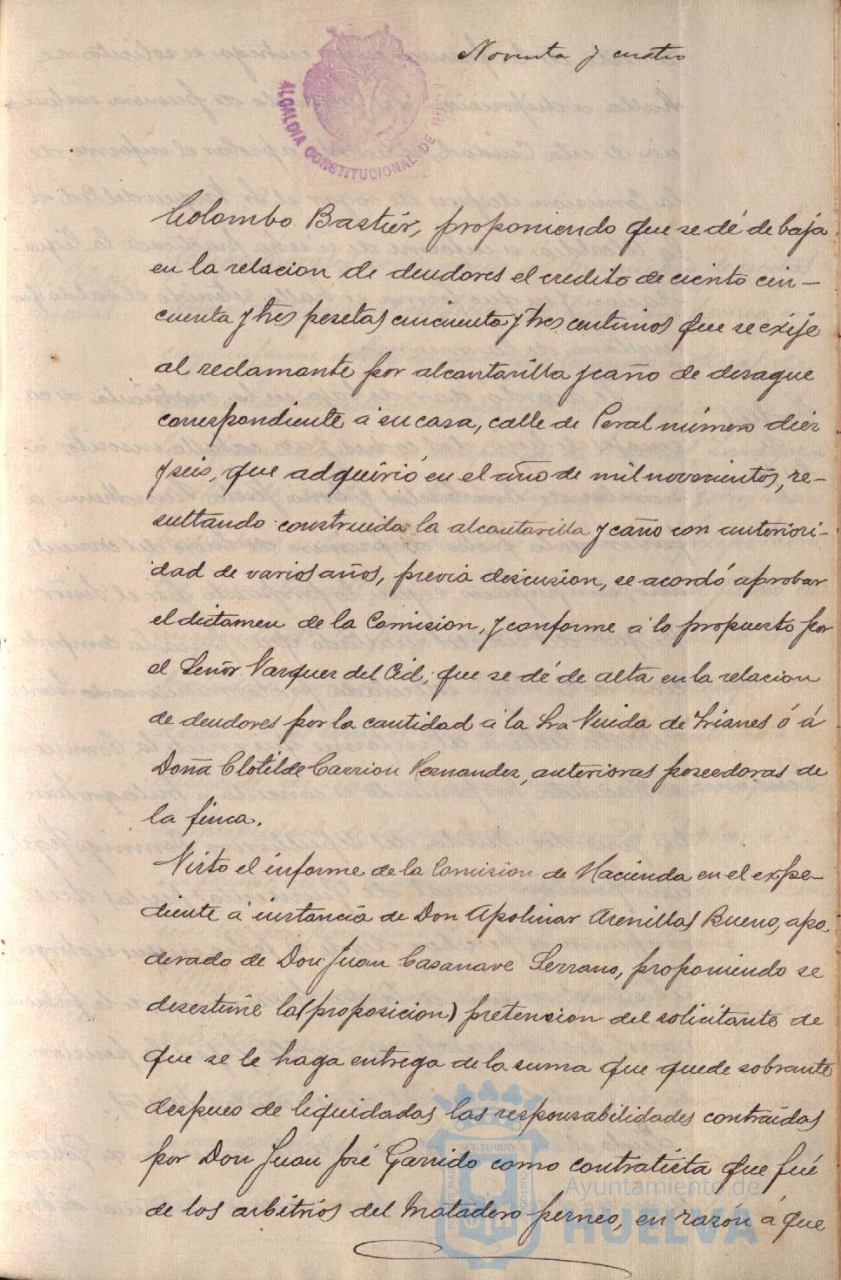 Noventa y cuatro
ALCALDIA CONSTITUCIONAL DE
Colombo Bastiér, proponiendo que se dé de baja
en la relacion de deudores el credito de ciento cin-
cuenta y tres pesetas cincuenta y tres centimos que se exije
al reclamante por alcantarilla y caño de desague
correspondiente á su casa, calle de Peral número diez
y seis, que adquirió en el año de mil novecientos, re-
sultando construida la alcantarilla y caño con anteriori-
dad de varios años, previa discusion, se acordó aprobar
el dictamen de la Comision, y conforme á lo propuesto por
el Señor Vazquez del Cid, que se dé de alta en la relacion
de deudores por la cantidad á la Sra Viuda de Trianes ó á
Doña Clotilde Carrion Hernandez, anterioras poseedoras de
la finca.
Visto el informe de la Comision de Hacienda en el expe-
diente á instancia de Don Apolinar Arenillas Bueno, apo-
derado de Don Juan Casanave Serrano, proponiendo se
desestime la (proposicion) pretension del solicitante de
que se le haga entrega de la suma que quede sobrante
despues de liquidadas las responsabilidades contraidas
por Don Juan José Garrido como contratista que fué
de los arbitrios del Matadero perneo, en razón á que
Ayuntamiento de
HUELVA